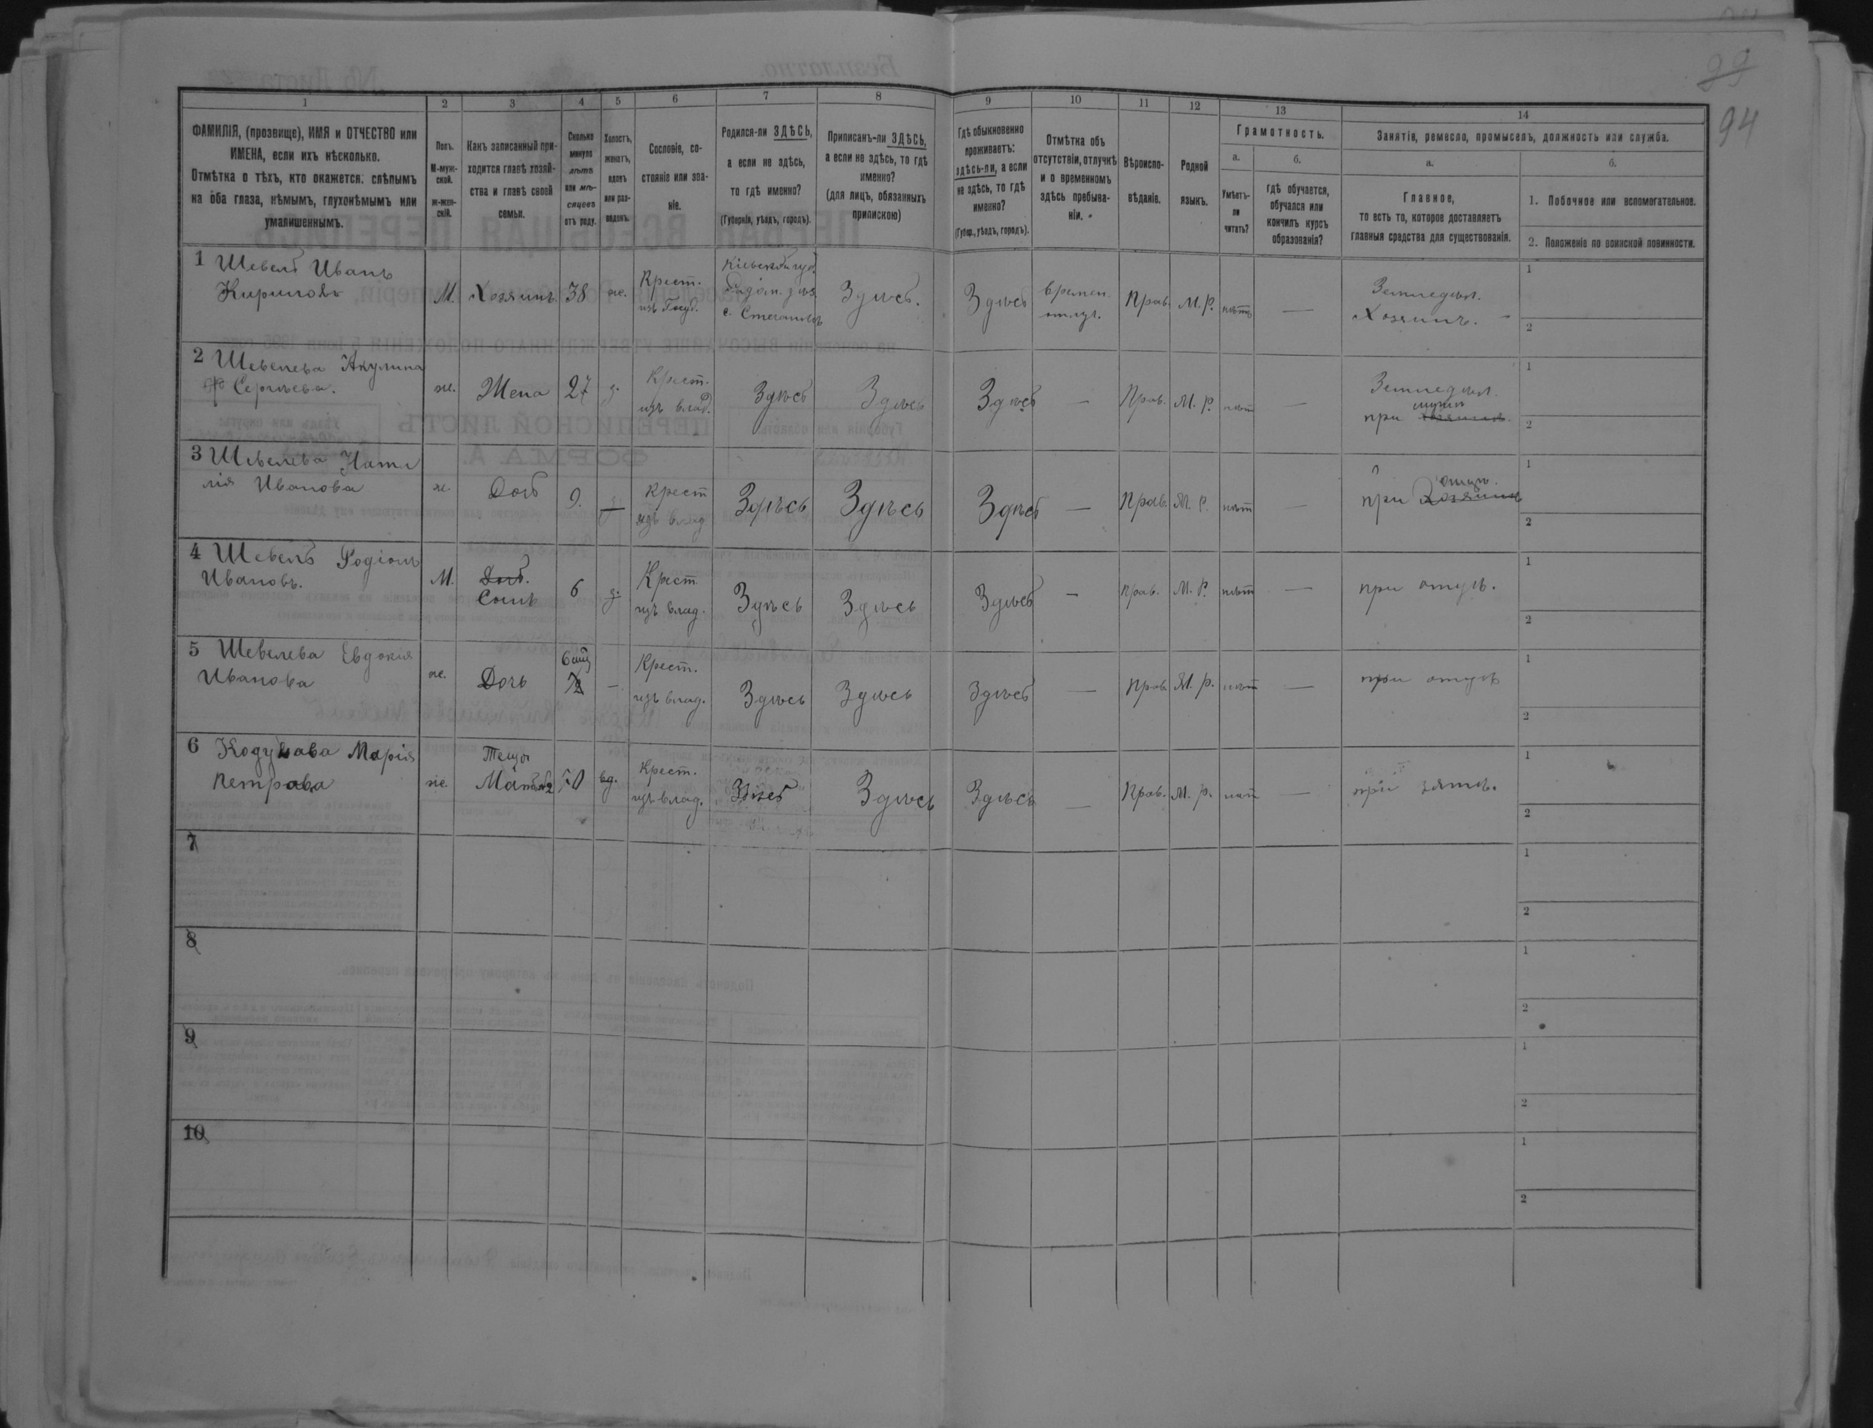 99
94
1 2 3 4 5 6 7 8 9 10 11 12 13 14
ФАМИЛІЯ, (прозвище), ИМЯ и ОТЧЕСТВО или
ИМЕНА, если ихъ нѣсколько.
Отмѣтка о тѣхъ, кто окажется: слѣпымъ
на оба глаза, нѣмымъ, глухонѣмымъ или
умалишеннымъ.
Полъ.
М-муж-
ской.
ж-жен-
скій.
Какъ записанный при-
ходится главѣ хозяй-
ства и главѣ своей
семьи.
Сколько
минуло
лѣтъ
или мѣ-
сяцевъ
отъ роду.
Холостъ,
женатъ,
вдовъ
или раз-
веденъ.
Сословіе, со-
стояніе или зва-
ніе.
Родился-ли ЗДѢСЬ,
а если не здѣсь,
то гдѣ именно?
(Губернія, уѣздъ, городъ).
Приписанъ-ли ЗДѢСЬ,
а если не здѣсь, то гдѣ
именно?
(для лицъ, обязанныхъ
припискою)
Гдѣ обыкновенно
проживаетъ:
здѣсь-ли, а если
не здѣсь, то гдѣ
именно?
(Губер., уѣздъ, городъ).
Отмѣтка объ
отсутствіи, отлучкѣ
и о временномъ
здѣсь пребыва-
ніи.
Вѣроиспо-
вѣданіе.
Родной
языкъ.
Грамотность.
а.
Умѣетъ-
ли
читать?
б.
гдѣ обучается,
обучался или
кончилъ курсъ
образованія?
Занятіе, ремесло, промыселъ, должность или служба.
а.
Главное,
то есть то, которое доставляетъ
главныя средства для существованія.
б.
1. Побочное или вспомогательное.
2. Положеніе по воинской повинности.
1 Шевель Иванъ
Кириловъ
М. Хозяинъ 38 ж.
Крест.
изъ Госуд.
Кіевской губ.
Здѣсь. Здѣсь
времен.
отлуч.
Прав. М.Р. нѣтъ —
Земледѣл.
Хозяинъ.
1
2
2 Шевелева Акулина
Сергѣева.
ж. Жена 27 з.
Крест.
изъ влад.
Здѣсь Здѣсь Здѣсь — Прав. М.Р. нѣтъ —
Земледѣл.
при мужѣ
1
2
3 Шевелева Ната
лія Иванова
ж. Дочь 9.
Крест
изъ влад
Здѣсь Здѣсь Здѣсь — Прав. М.Р. нѣтъ —
при отцѣ.
хозяинѣ
1
2
4 Шевель Родіонъ
Ивановъ.
М. Дочь.
Сынъ
6
Крест.
изъ влад.
Здѣсь Здѣсь Здѣсь — Прав. М.Р. нѣтъ — при отцѣ.
1
2
5 Шевелева Евдокія
Иванова
ж. Дочь —
Крест.
изъ влад.
Здѣсь Здѣсь Здѣсь — Прав М.Р. нѣтъ — при отцѣ
1
2
6 Кодунова Марія
Петрова
ж. Теща
50 вд.
Крест.
изъ влад.
Здѣсь Здѣсь Здѣсь — Прав. М.Р. нѣтъ — при зятѣ.
1
2
7
1
2
8
1
2
9
1
2
10
1
2